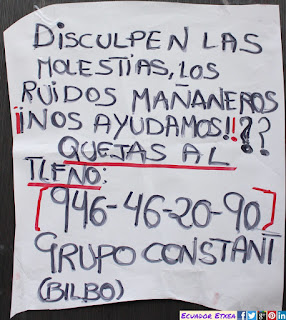 DISCULPEN LAS
MOLESTIAS, LOS
RUIDOS MAÑANEROS
¡¡NOS AYUDAMOS!!??
QUEJAS AL
TLFNO:
[946-46-20-90]
GRUPO CONSTANT
(BILBO)
ECUADOR ETXEA